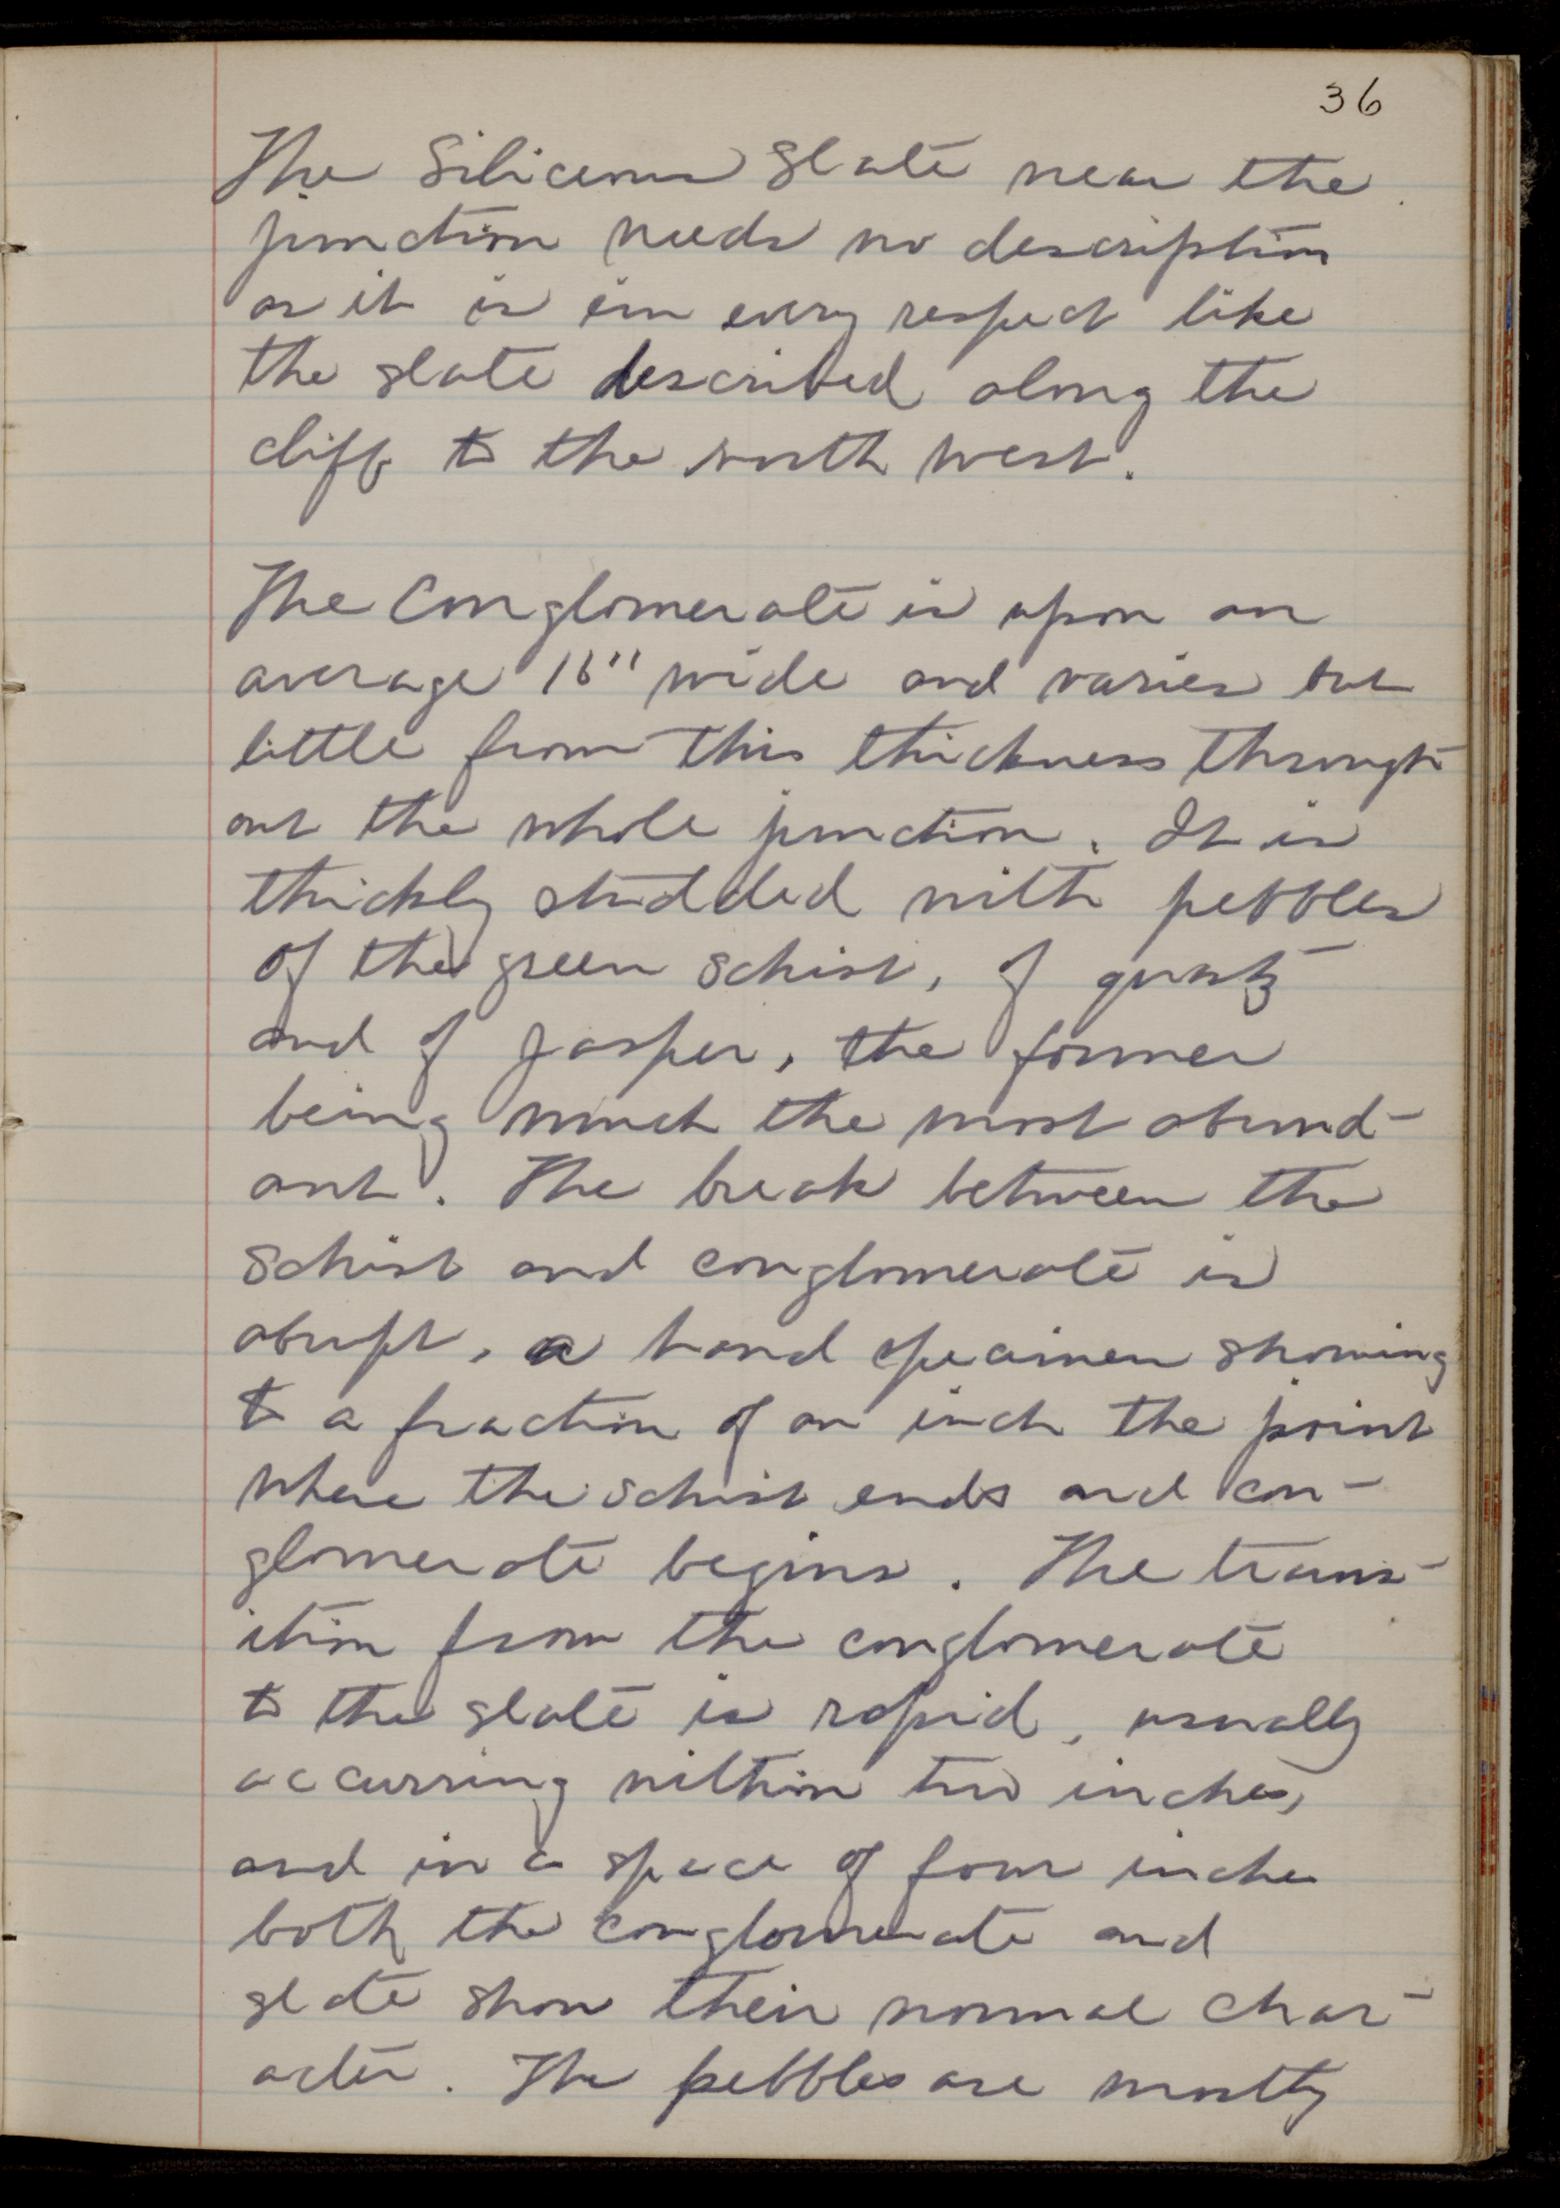 36
The Siliceous Slate near the
junction needs no description
as it is in every respect like
the slate described along the
cliff to the north west.
The Conglomerate is upon an
average 16" wide and varies but
little from this thickness through-
out the whole junction. It is
thickly studded with pebbles
of the green schist, of quartz
and of Jasper, the former
being much the most abund-
ant. The break between the
schist and conglomerate is
abrupt, a hand specimen showing
to a fraction of an inch the point
where the schist ends and con-
glomerate begins. The trans-
ition from the conglomerate
to the slate is rapid, usually
occurring within two inches,
and in a space of four inches
both the conglomerate and
slate show their normal char-
acter. The pebbles are mostly